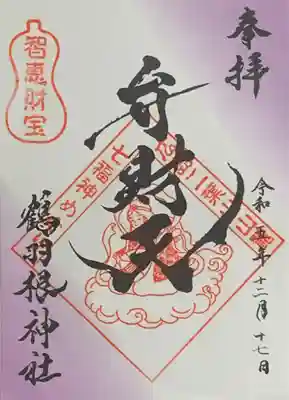 奉拝
智恵財宝
弁財天
七福神め
二葉
令和五年十二月十七日
鶴羽根神社